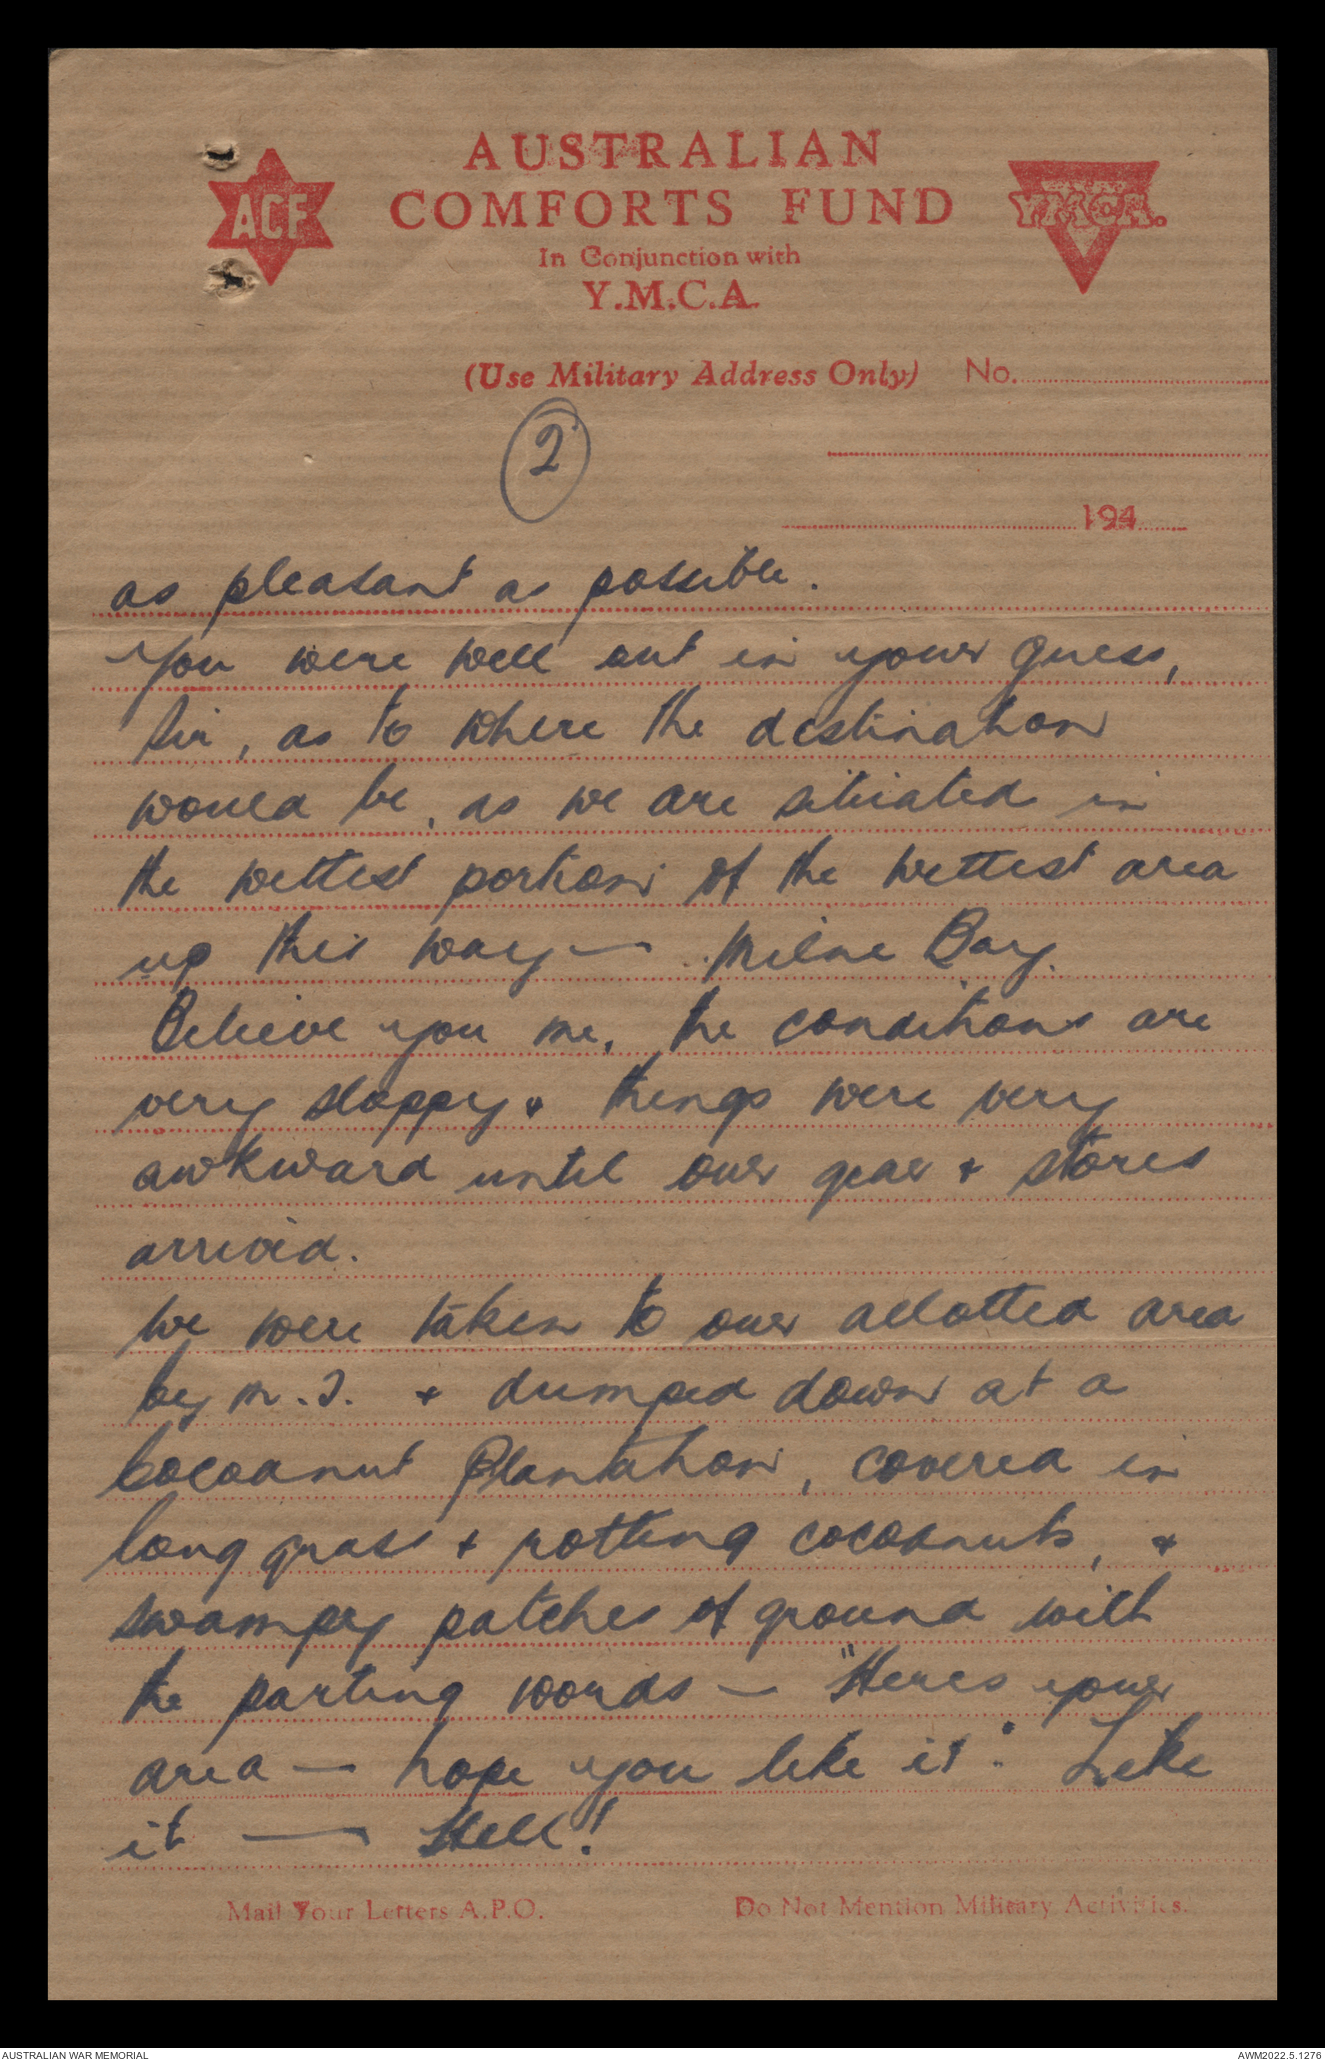 AUSTRALIAN
COMFORTS FUND
ACF
YMCA.
In Conjunction with
Y.M.C.A.
(Use Military Address Only) No.
2
194
as pleasant as possible.
You were well out in your guess,
Sir, as to where the destination
would be, as we are situated in
the wettest portion of the wettest area
up this way — Milne Bay.
Believe you me, the conditions are
very sloppy & things were very
awkward until our gear & stores
arrived.
We were taken to our allotted area
by M.T. & dumped down at a
Cocoanut Plantation, covered in
long grass & rotting cocoanuts, &
swampy patches of ground with
the parting words — "Heres your
area — hope you like it". Like
it — Hell!
Mail Your Letters A.P.O. Do Not Mention Military Activities.
AUSTRALIAN WAR MEMORIAL AWM2022.5.1276